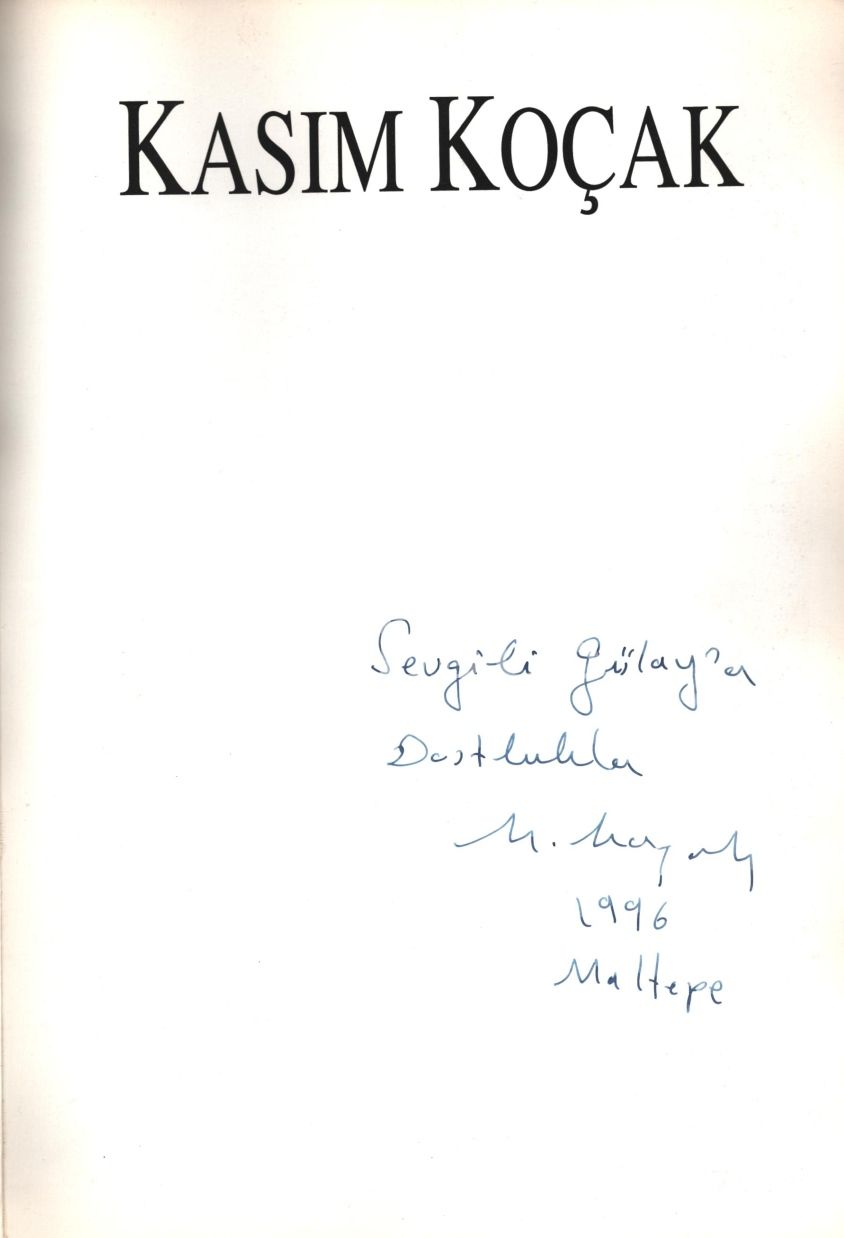 KASIM KOÇAK
Sevgili Gülay'a
Dostlukla
1996
Maltepe